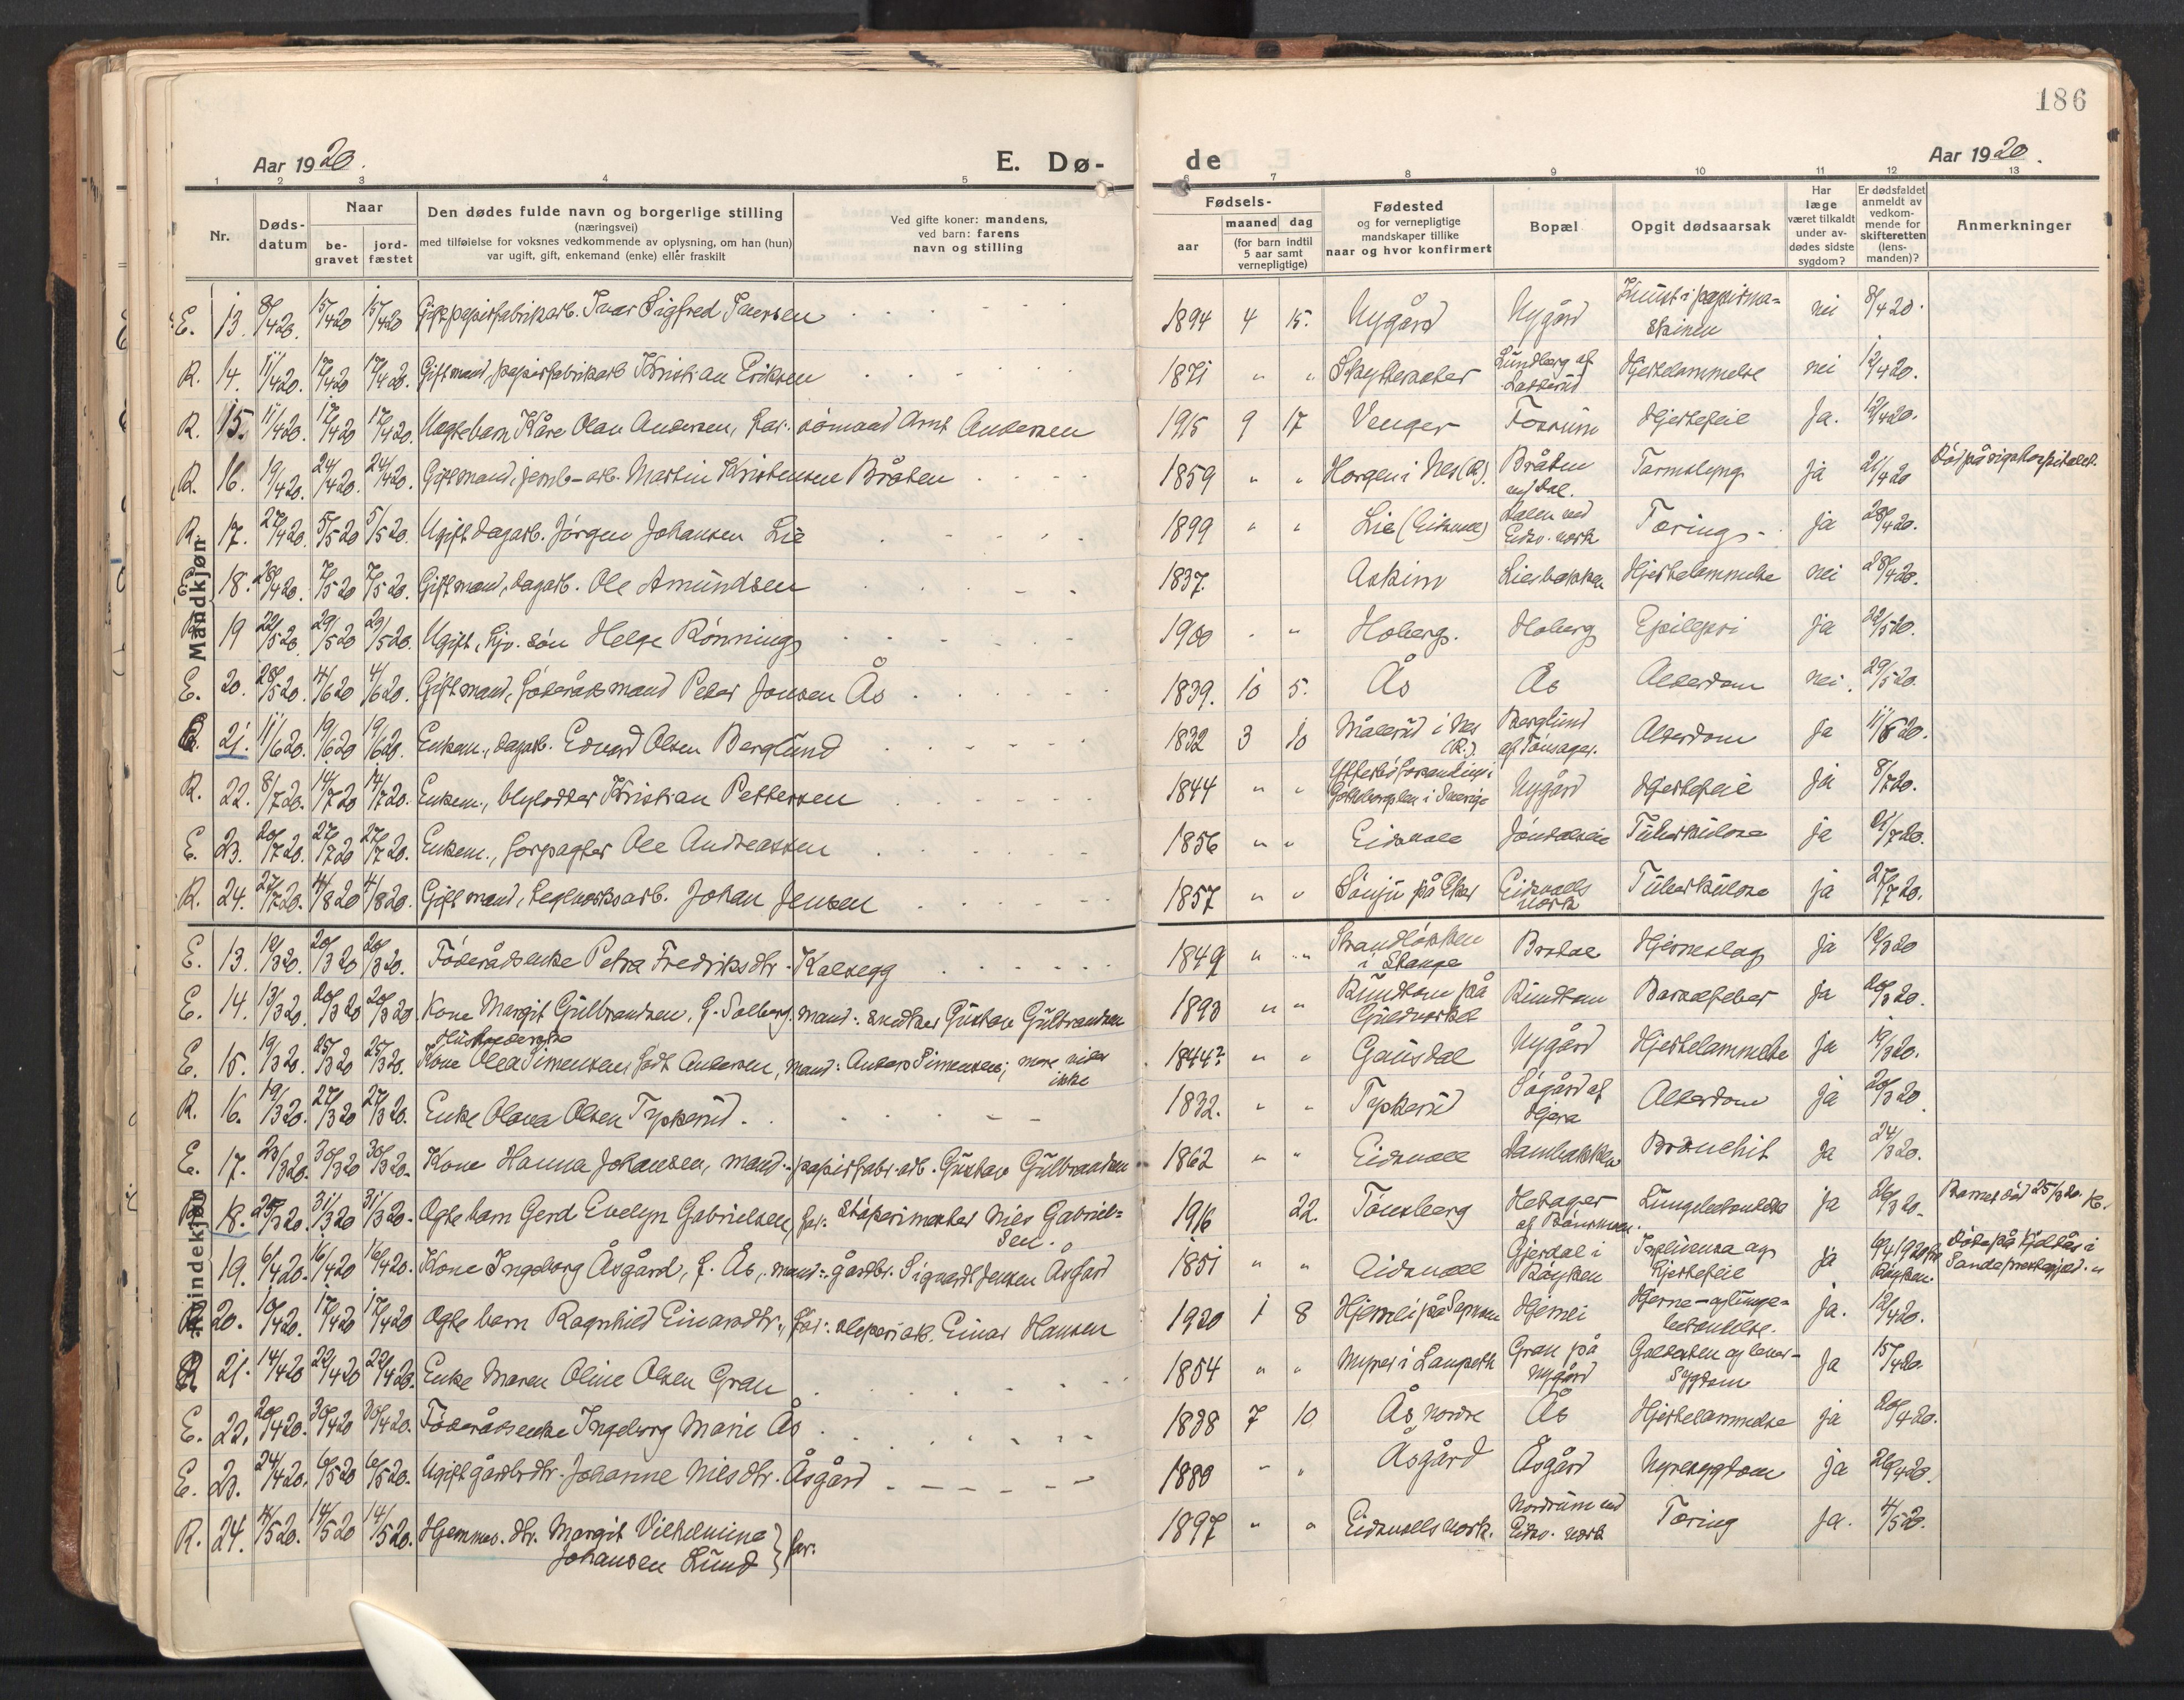 186
Aar 1920.
E. Dø-
de
Aar 1920.
1 2 3 4 5 6 7 8 9 10 11 12 13
Nr.
Døds-datum
Naar
be-gravet
jord-fæstet
Den dødes fulde navn og borgerlige stilling
(næringsvei)
med tilføielse for voksnes vedkommende av oplysning, om han (hun)
var ugift, gift, enkemand (enke) eller fraskilt
Ved gifte koner: mandens,
ved barn: farens
navn og stilling
Fødsels-
aar
maaned dag
(for barn indtil 5 aar samt vernepligtige)
Fødested
og for vernepligtige mandskaper tillike
naar og hvor konfirmert
Bopæl
Opgit dødsaarsak
Har læge været tilkaldt under av-dødes sidste sygdom?
Er dødsfaldet anmeldt av vedkom-mende for skifteretten (lens-manden)?
Anmerkninger
Mandkjøn
E. 13. 8/4 20. 15/4 20 15/4 20 Gift papirfabrikarb. Ivar Sigfred Iversen 1894 4 15. Nygård Nygård Knust i papirma-skinen nei 8/4 20.
R. 14. 11/4 20. 17/4 20 17/4 20. Gift mand, papirfabrikarb Kristian Eriksen 1871 " " Skytteseter Lundberg af nei 12/4 20.
R. 15. 11/4 20. 17/4 20 17/4 20. Uegte barn Kåre Olav Andersen, Far: sømand Arnt Andersen 1915 9 17 Venger Fossum Hjertefeil Ja. 12/4 20.
R. 16. 19/4 20. 24/4 20. 24/4 20. Gift mand, jernb-arb. Martin Kristensen Bråten 1859 " " Horgen i Nes (R). Bråten v/ Dal. Tarmslyng ja 21/4 20 Død på rigshospitalet.
R. 17. 27/4 20. 5/5 20 5/5 20. Ugift dagarb. Jørgen Johansen Lie 1899 " " Lie (Eidsvoll) Dalen ved Eidsv. verk Tæring - ja 28/4 20.
E. 18. 28/4 20. 7/5 20 7/5 20. Gift mand, dagarb. Ole Amundsen 1837. Askim Liesbakken Hjertelammelse nei 28/4 20.
R. 19 22/5 20. 29/5 20 29/5 20. Ugift, Gjv. søn Helge Rønnings 1900 " " Hoberg. Hoberg Epilepsi ja 22/5 20.
E. 20. 28/5 20. 4/6 20 4/6 20. Gift mand, føderådsmand Peder Jonsen Ås 1839. 10 5. Ås Ås Alderdom nei. 29/5 20.
R. 21. 11/6 20. 19/6 20 19/6 20. Enkem., dagarb. Edvard Olsen Berglund 1832 3 10 Målerud i Nes (R.). Berglund af Tønsager. Alderdom ja 11/6 20.
R. 22. 8/7 20. 14/7 20 14/7 20. Enkem., Kristian Pettersen 1844 " " i Sverige Nygård Hjertefeil ja 8/7 20.
E. 23. 20/7 20. 27/7 20 27/7 20. Enkem., forpagter Ole Andreassen 1856 " " Eidsvoll Tuberkulose ja 21/7 20.
R. 24. 27/7 20. 4/8 20 4/8 20. Gift mand, teglverksarb. Johan Jensen 1857 " " på Eker Eidsvolls verk Tuberkulose ja 27/7 20.
Kvindekjøn
E. 13. 12/3 20. 20/3 20 20/3 20. Føderådsenke Petra Fredriksdtr. Kalsegg 1849 " " Strandløkken i Stange Hjerneslag ja 12/3 20
E. 14. 13/3 20. 20/3 20 20/3 20. Kone Margit Gulbrandsen, f. Solberg. Mand: snedker Gustav Gulbrandsen 1893 " " Rundtom på Guldverket Rundtom Barselfeber ja 20/3 20.
E. 15. 19/3 20. 25/3 20 25/3 20. Kone Olea Simensen, født Andersen, mand: Anders Simensen; mere vides ikke 1844? " " Gausdal Nygård Hjertelammelse ja 19/3 20.
R. 16. 19/3 20. 27/3 20 27/3 20. Enke Olava Olsen Tyskerud. 1832. " " Tyskerud Søgård af Alderdom ja 20/3 20
E. 17. 23/3 20. 30/3 20 30/3 20. Kone Hanna Johansen, mand: papirfabr.arb. Gustav Gulbrandsen 1862 " " Eidsvoll Dambakken Bronchit ja 24/3 20.
R. 18. 25/3 20. 31/3 20 31/3 20. Ægte barn Gerd Evelyn Gabrielsen, far: støperimester Nils Gabriel-sen. 1916 22. Tønsberg Hetager Lungebetændelse ja 26/3 20. Barnet død 25/3 20.
19. 6/4 20. 16/4 20 16/4 20. Kone Ingeborg Åsgård, f. Ås, mand: gårdbr. Sigvardt Jensen Åsgård 1851 " " Eidsvoll Gjerdal i Røyken Influensa og hjertefeil ja 6/4 1920 Røyken. Døde på i Sande prestegjeld.
R. 20. 10/4 20. 17/4 20 17/4 20 Ægte barn Ragnhild Einarsdtr., far: sliperiarb. Einar Hansen 1920 1 8 Hjemli Hjerne- og lunge-betændelse. ja. 12/4 20.
R 21. 14/4 20 22/4 20 22/4 20. Enke Maren Oline Olsen Gran 1854 " " Myrer i Langseth Gran på Nygård Galdesten og lever-sygdom ja 15/4 20.
E. 22. 20/4 20. 30/4 20 30/4 20. Føderådsenke Ingeborg Marie Ås 1838 7 10 Ås nordre Ås Hjertelammelse ja 20/4 20.
E. 23. 24/4 20. 6/5 20 6/5 20. Ugift gårdbrdtr. Johanne Nilsdtr. Åsgård 1889 " " Åsgård Åsgård Nyresygdom ja 26/4 20.
R. 24. 4/5 20. 14/5 20 14/5 20. Hjemmev. dtr. Margit Vilhelmine Johansen Lund } far: 1897 " " Eidsvolls verk. Nordrum ved Eidsv. verk Tæring ja. 4/5 20.